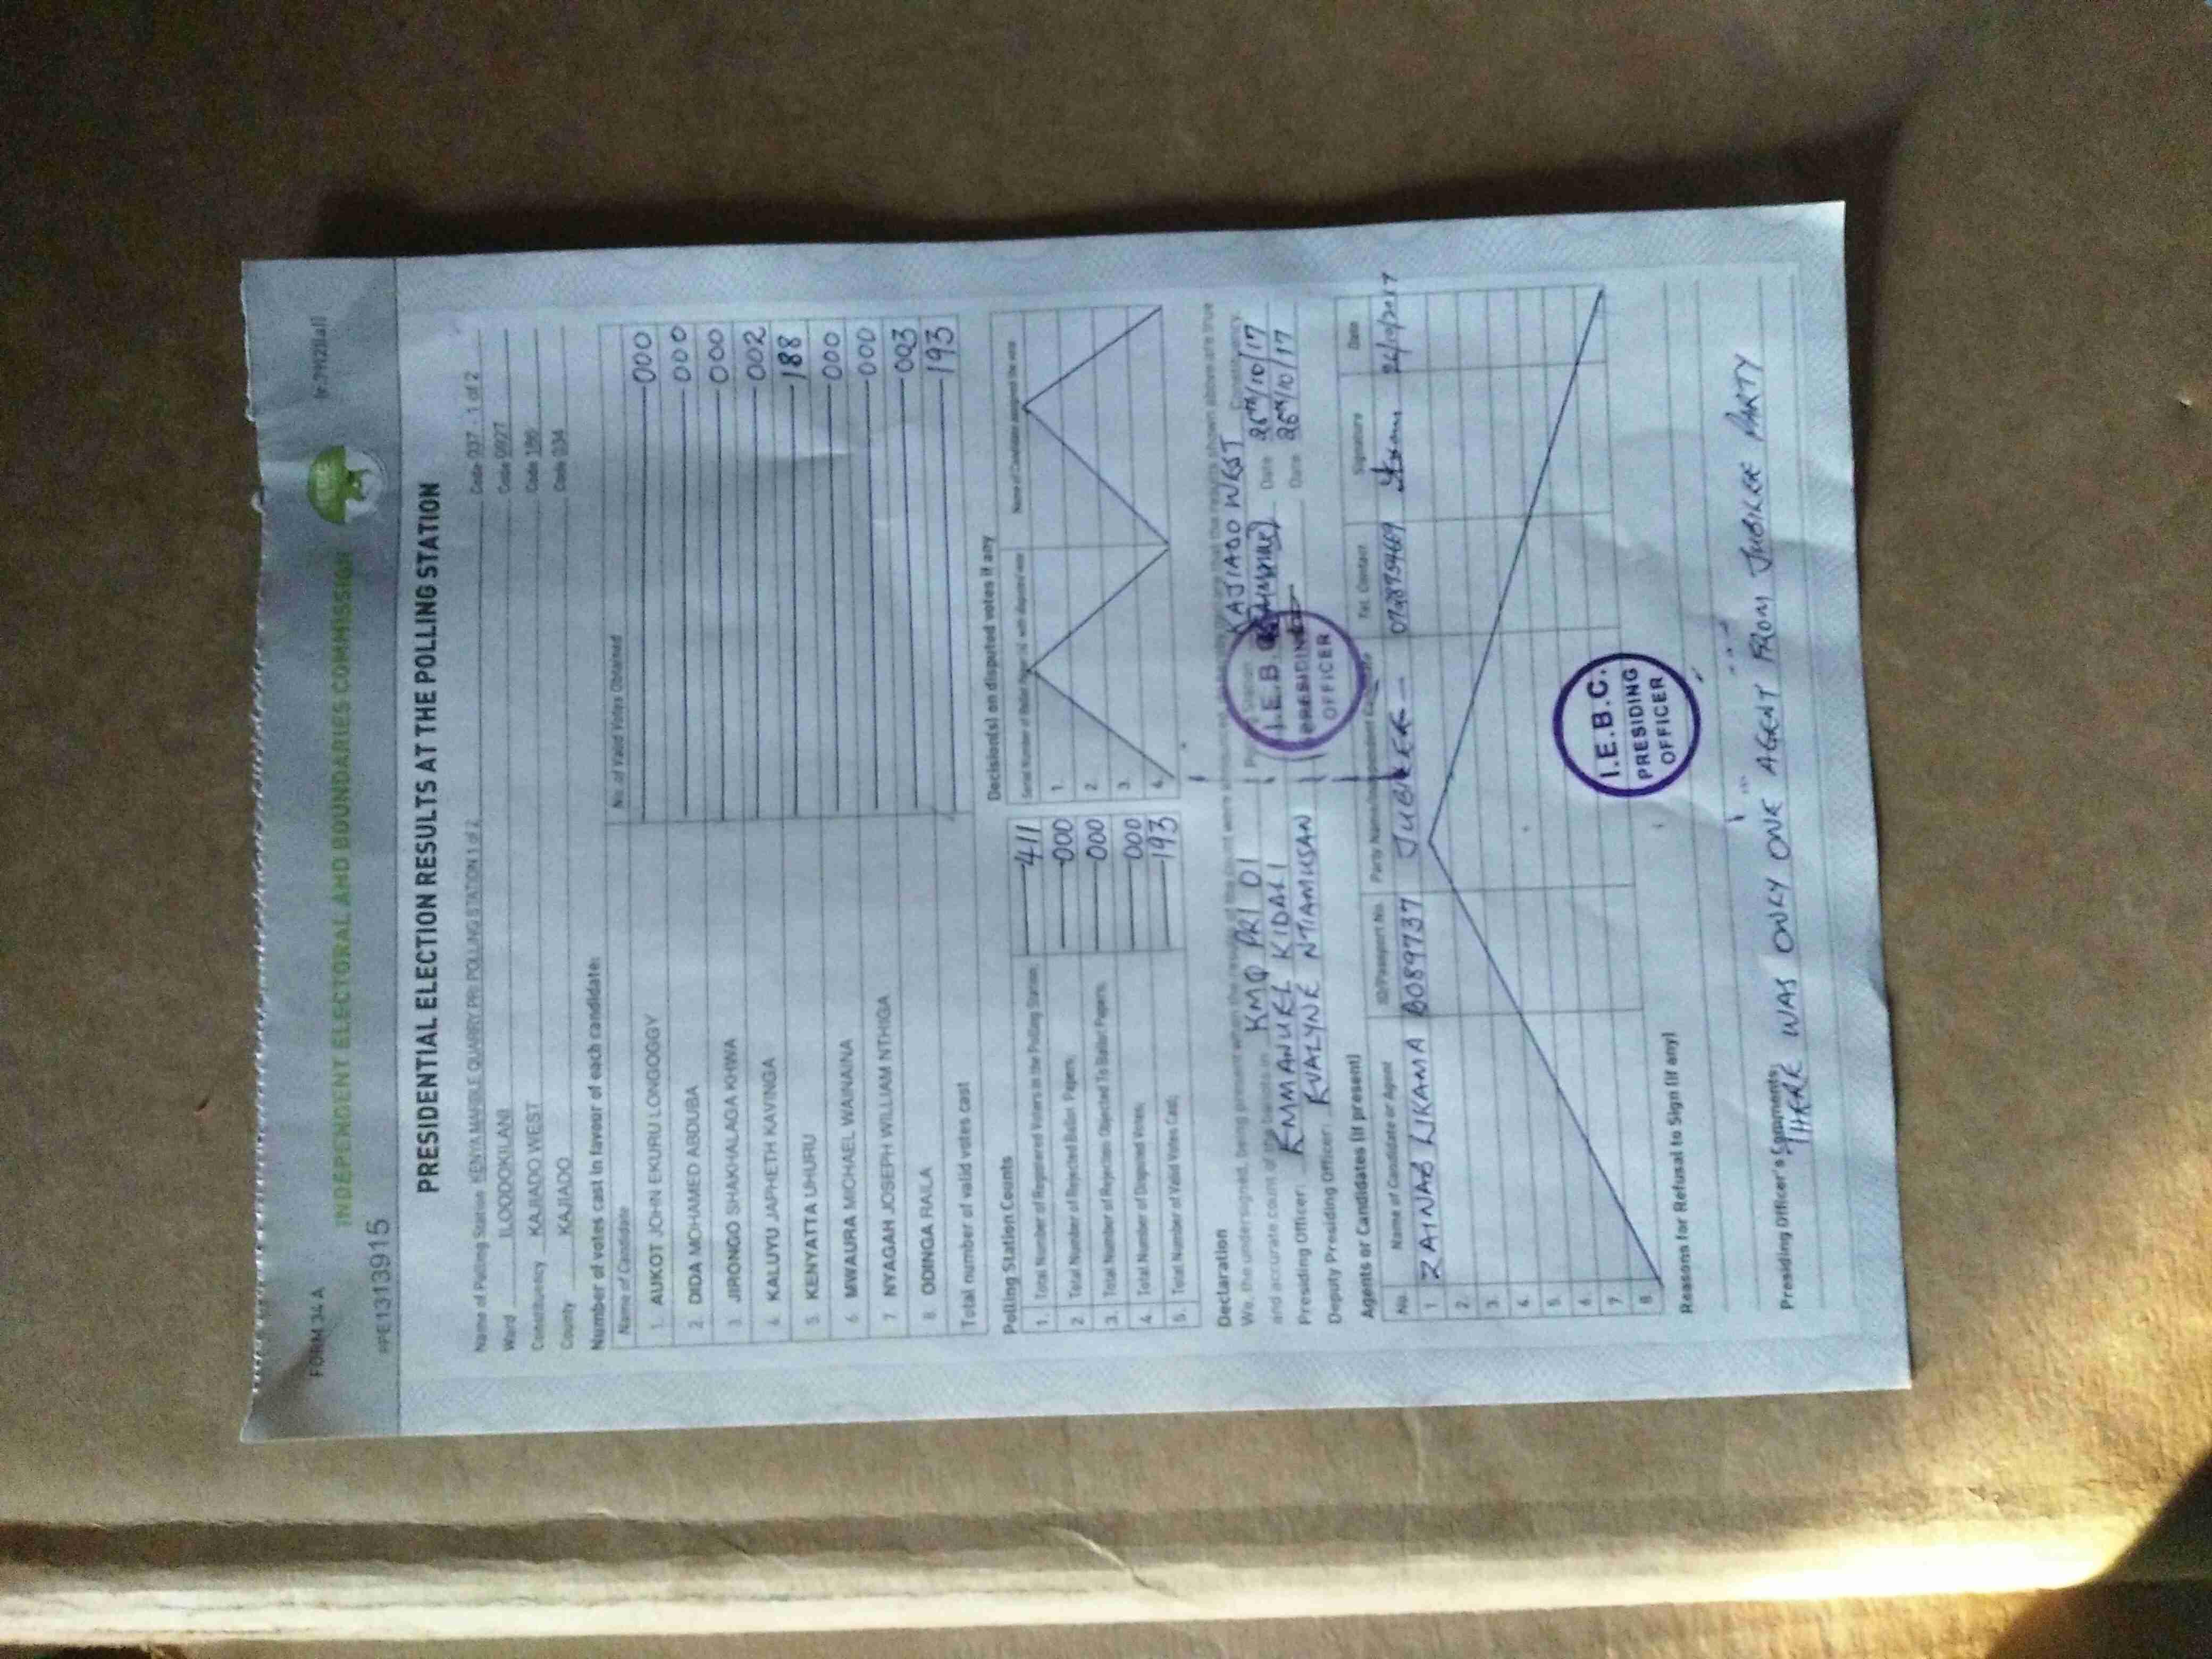 FORM 34 A
INDEPENDENT ELECTORAL AND BOUNDARIES COMMISSION
#PE1313915
PRESIDENTIAL ELECTION RESULTS AT THE POLLING STATION
Name of Polling Station KENYA MARBLE QUARRY PRI POLLING STATION 1 of 2 Code 037 - 1 of 2
Ward ILOODOKILANI Code 0927
Constituency KAJIADO WEST Code 186
County KAJIADO Code 034
Number of votes cast in favour of each candidate:
Name of Candidate No. of Valid Votes Obtained
1. AUKOT JOHN EKURU LONGOGGY 000
2. DIDA MOHAMED ABDUBA 000
3. JIRONGO SHAKHALAGA KHWA 000
4. KALUYU JAPHETH KAVINGA 002
5. KENYATTA UHURU 188
6. MWAURA MICHAEL WAINAINA 000
7. NYAGAH JOSEPH WILLIAM NTHIGA 000
8. ODINGA RAILA 003
Total number of valid votes cast 193
Polling Station Counts
1. Total Number of Registered Voters in the Polling Station 411
2. Total Number of Rejected Ballot Papers 000
3. Total Number of Rejection Objected To Ballot Papers 000
4. Total Number of Disputed Votes 000
5. Total Number of Valid Votes Cast 193
Decision(s) on disputed votes if any
Serial Number of Ballot Paper(s) with disputed vote Name of Candidate assigned the vote
1.
2.
3.
4.
Declaration
We, the undersigned, being present when the results of the count were that the results shown above are true
and accurate count of the ballots in KMQ PRI 01 Polling Station KAJIADO WEST Constituency
Presiding Officer: EMANUEL KIDALI Date 26TH/10/17
Deputy Presiding Officer: EVALYNE NTIAMUSAN Date 26TH/10/17
I.E.B.C.
PRESIDING
OFFICER
Agents or Candidates (if present)
No. Name of Candidate or Agent ID/Passport No. Party Name/Independent Candidate Tel. Contact Signature Date
1 ZAINAB LIKAMA B089737 JUBILEE 0728754669 26/10/2017
2.
3.
4.
5.
6.
7.
8.
I.E.B.C.
PRESIDING
OFFICER
Reasons for Refusal to Sign (if any)
Presiding Officer's Comments
THERE WAS ONLY ONE AGENT FROM JUBILEE PARTY